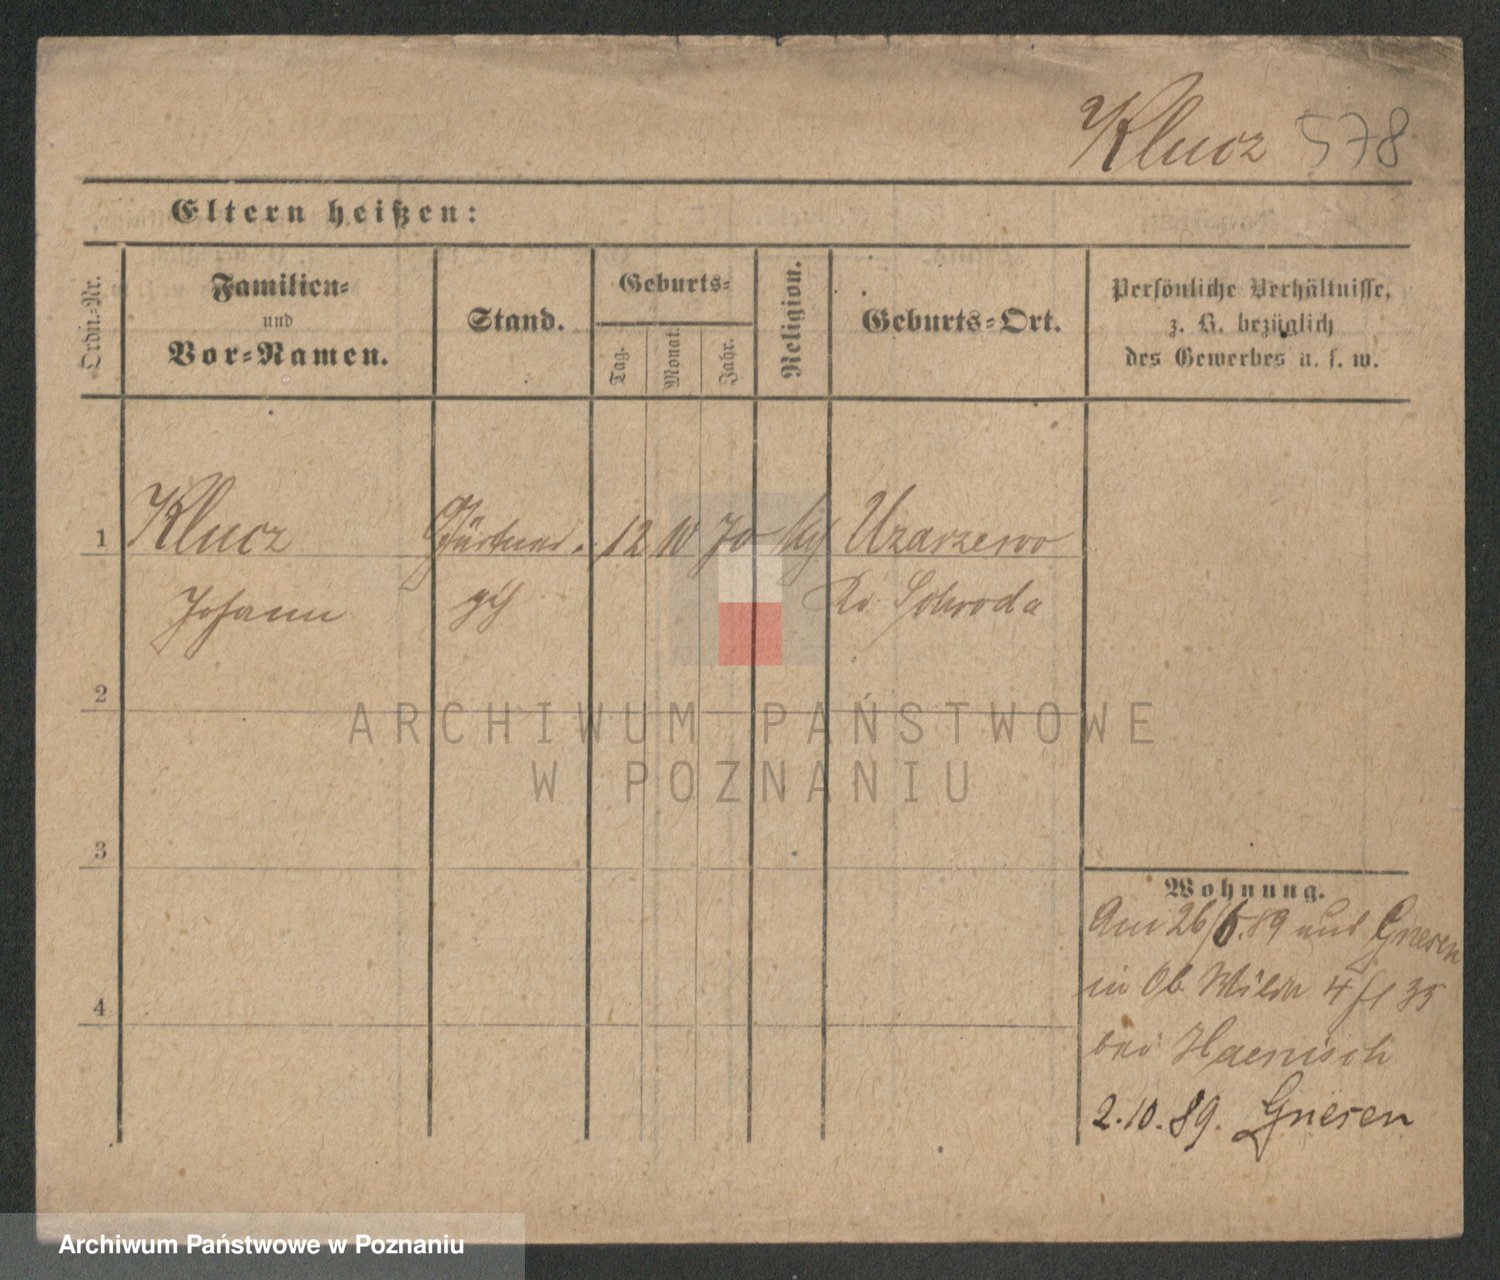 Klucz 578
Eltern heißen:
Ordn.-Nr.
Familien-
und
Vor-Namen.
Stand.
Geburts-
Tag.
Monat.
Jahr.
Religion.
Geburts-Ort.
Persönliche Verhältnisse,
z. B. bezüglich
des Gewerbes u. s. w.
1 Klucz Gärtner. 12 10 70 Uzarzewo
Johann Schroda
2
3
4
Wohnung.
Am 26/6.89 aus Gnesen
in Ob Wilda 4 35
bei Haenisch
2.10.89. Gnesen
ARCHIWUM PAŃSTWOWE
W POZNANIU
Archiwum Państwowe w Poznaniu